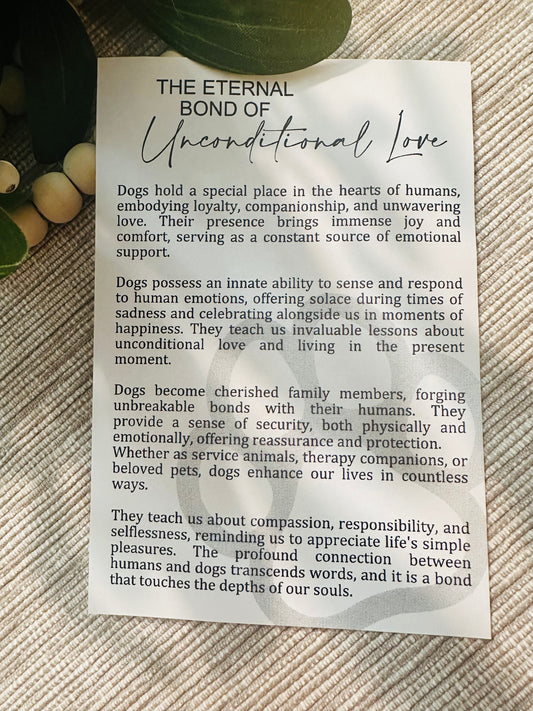 THE ETERNAL
BOND OF
Unconditional Love
Dogs hold a special place in the hearts of humans,
embodying loyalty, companionship, and unwavering
love. Their presence brings immense joy and
comfort, serving as a constant source of emotional
support.
Dogs possess an innate ability to sense and respond
to human emotions, offering solace during times of
sadness and celebrating alongside us in moments of
happiness. They teach us invaluable lessons about
unconditional love and living in the present
moment.
Dogs become cherished family members, forging
unbreakable bonds with their humans. They
provide a sense of security, both physically and
emotionally, offering reassurance and protection.
Whether as service animals, therapy companions, or
beloved pets, dogs enhance our lives in countless
ways.
They teach us about compassion, responsibility, and
selflessness, reminding us to appreciate life's simple
pleasures. The profound connection between
humans and dogs transcends words, and it is a bond
that touches the depths of our souls.